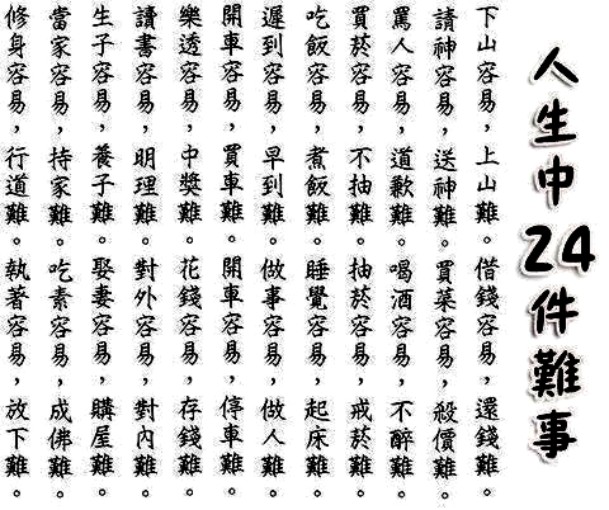 人生中24件難事
下山容易，上山難。借錢容易，還錢難。
請神容易，送神難。買菜容易，殺價難。
罵人容易，道歉難。喝酒容易，不醉難。
買菸容易，不抽難。抽菸容易，戒菸難。
吃飯容易，煮飯難。睡覺容易，起床難。
遲到容易，早到難。做事容易，做人難。
開車容易，買車難。開車容易，停車難。
樂透容易，中獎難。花錢容易，存錢難。
讀書容易，明理難。對外容易，對內難。
生子容易，養子難。娶妻容易，購屋難。
當家容易，持家難。吃素容易，成佛難。
修身容易，行道難。執著容易，放下難。